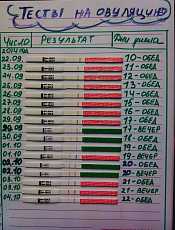 ТЕСТЫ НА ОВУЛЯЦИЮ
ЧИСЛО РЕЗУЛЬТАТ
22.09 10-ОБЕД
23.09 11-ОБЕД
24.09 12-ОБЕД
25.09 13-ОБЕД
26.09 14-ОБЕД
27.09 15-ОБЕД
28.09 16-ОБЕД
29.09 17-ОБЕД
17-ВЕЧЕР
18-ОБЕД
01.10 19-ОБЕД
01.10 19-ВЕЧЕР
02.10 20-ОБЕД
02.10 20-ВЕЧЕР
03.10 21-ОБЕД
03.10 21-ВЕЧЕР
04.10 22-ОБЕД